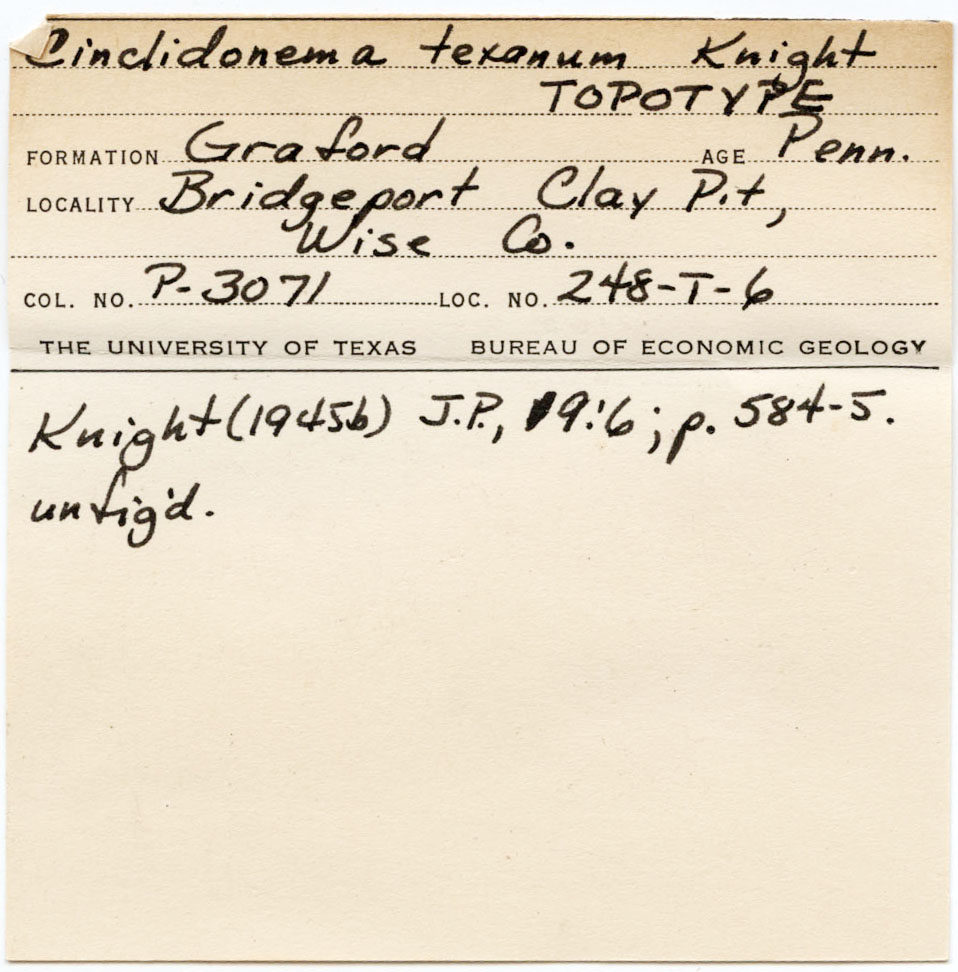 Cinclidonema texanum Knight
TOPOTYPE
FORMATION Graford AGE Penn.
LOCALITY Bridgeport Clay Pit,
Wise Co.
COL. NO. P-3071 LOC. NO. 248-T-6
THE UNIVERSITY OF TEXAS BUREAU OF ECONOMIC GEOLOGY
Knight (1945b) J.P., 19:6; p. 584-5.
unfig'd.